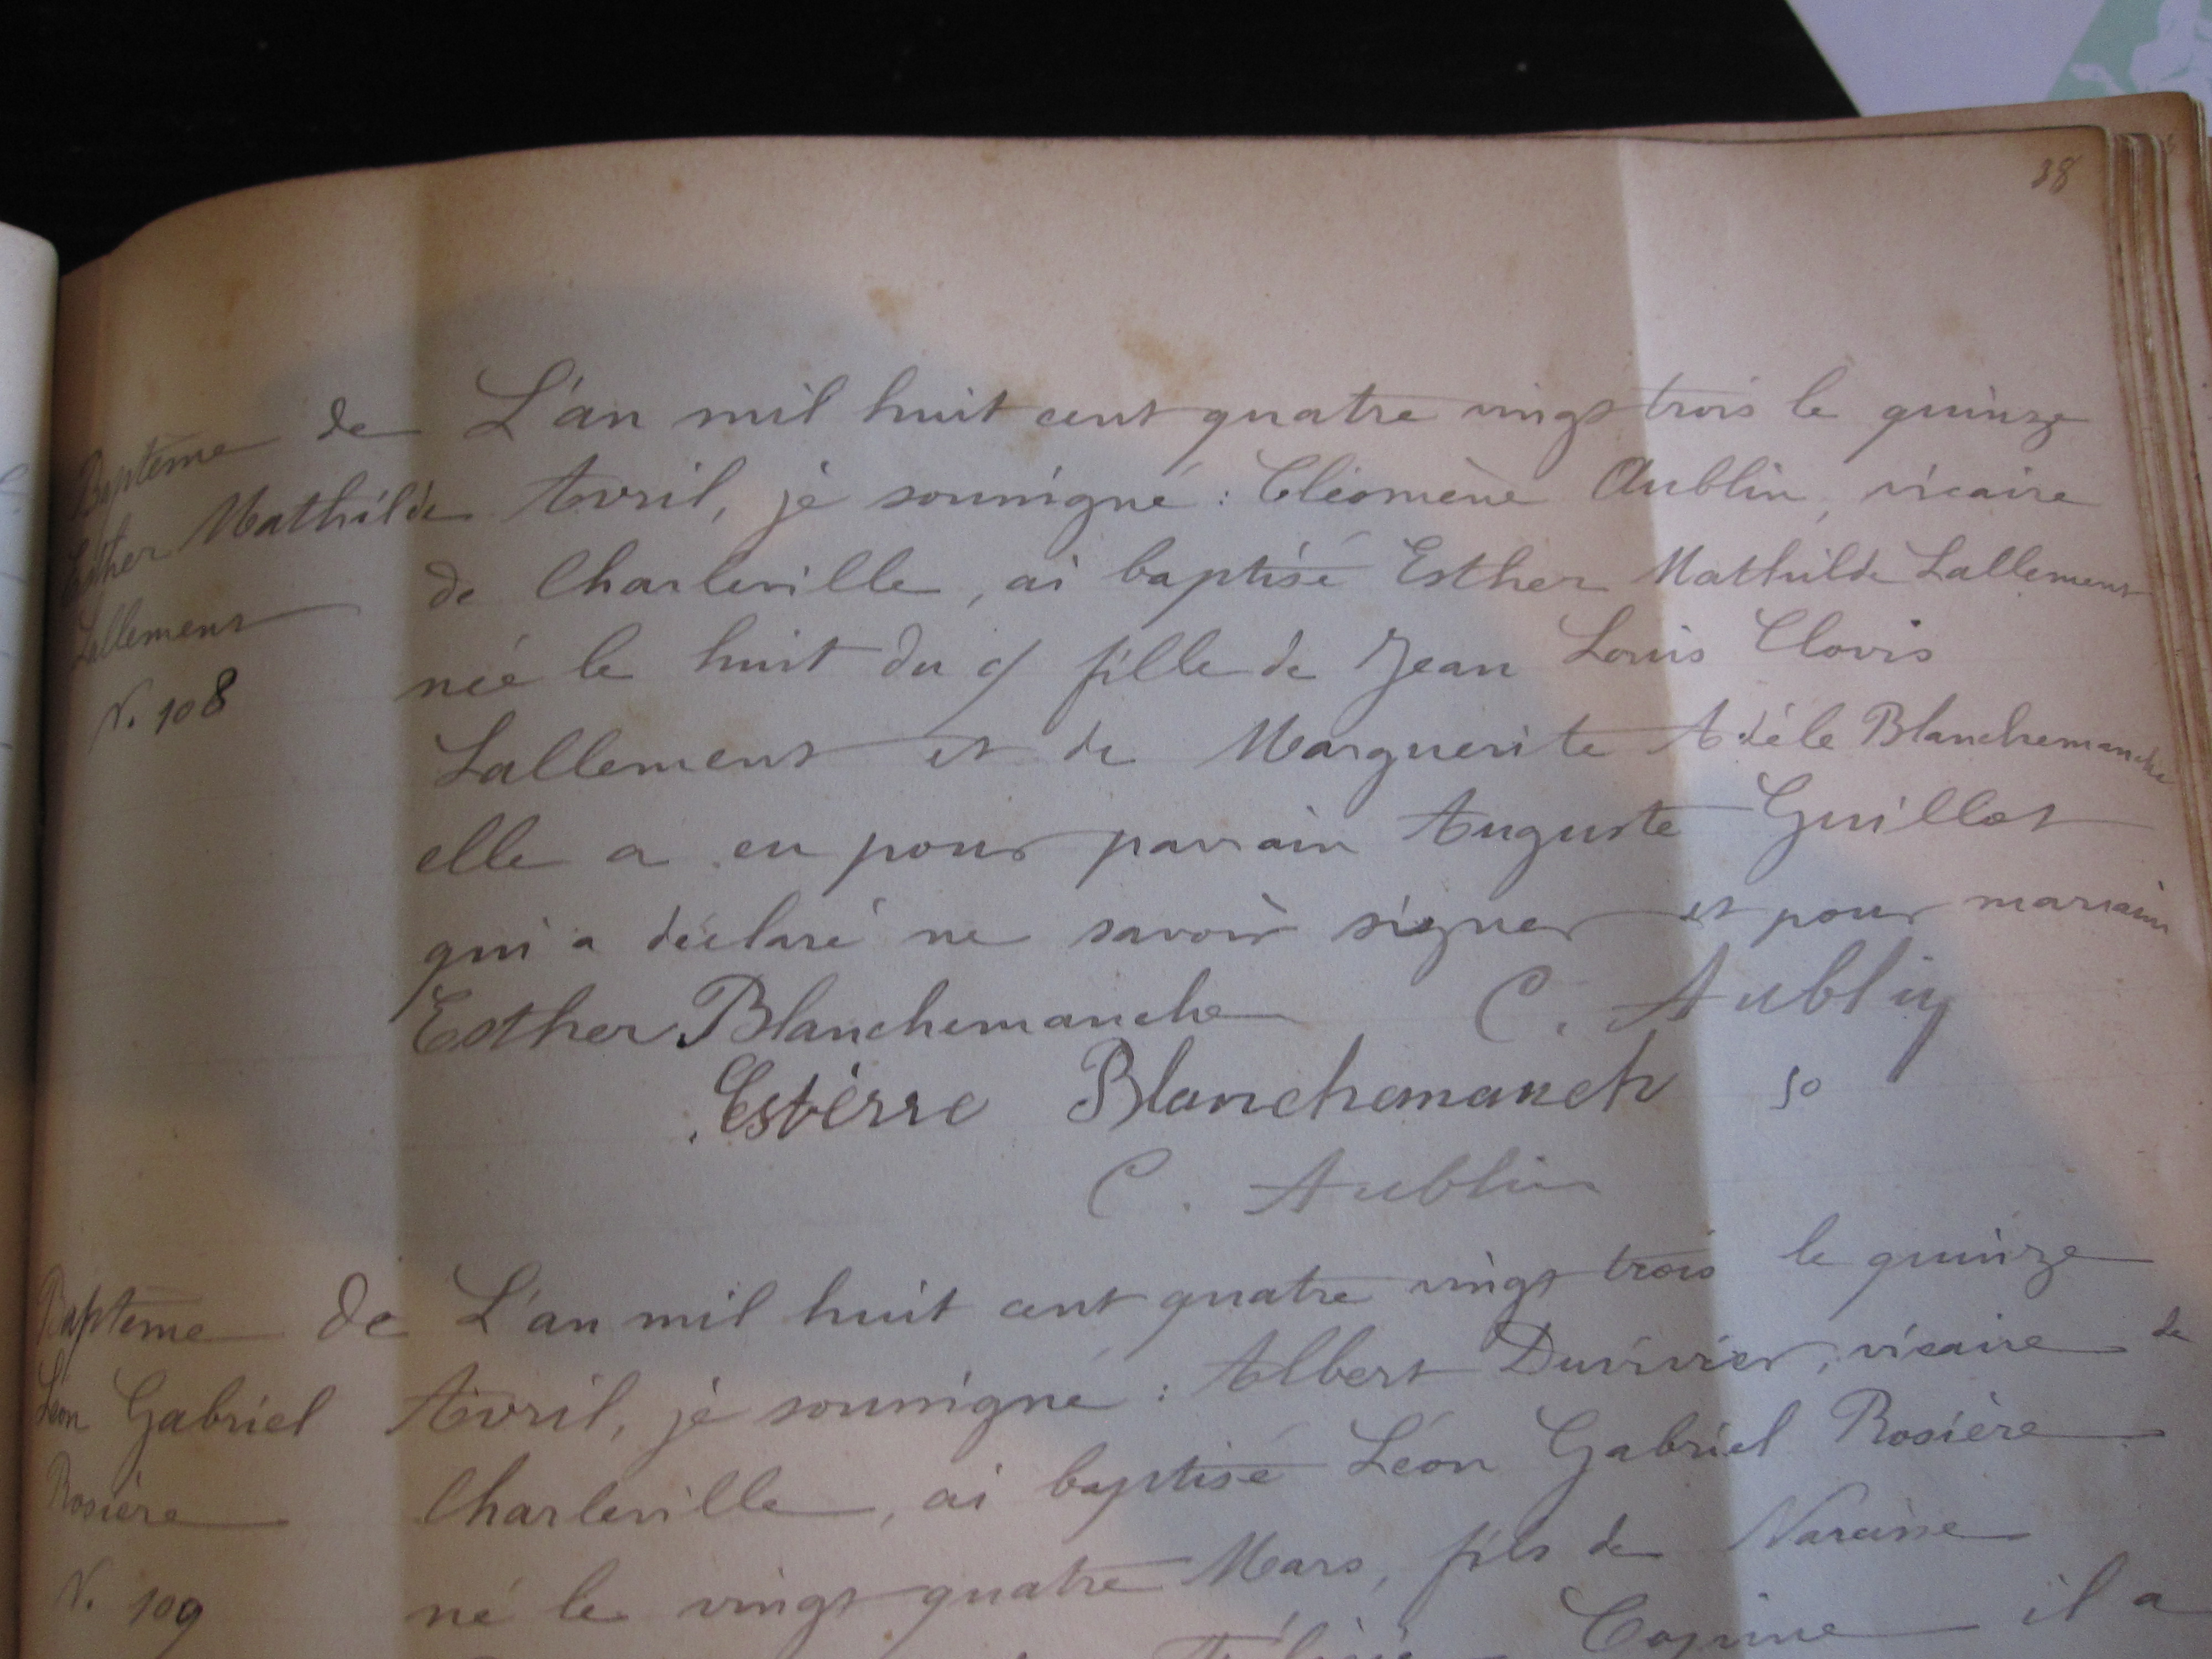 38
Baptême de
Esther Mathilde
Lallement
N. 108
L'an mil huit cent quatre vingt trois le quinze
Avril, je soussigné : Cléomène Aublin, vicaire
de Charleville, ai baptisé Esther Mathilde Lallement
née le huit du ct fille de Jean Louis Clovis
Lallement et de Marguerite Adèle Blanchemanche
elle a eu pour parrain Auguste Guillot
qui a déclaré ne savoir signer et pour marraine
Esther Blanchemanche C. Aublin
Estèrre Blanchemanch
C. Aublin
Baptême de
Léon Gabriel
Rosière
N. 109
L'an mil huit cent quatre vingt trois le quinze
Avril, je soussigné : Albert Duvivier, vicaire de
Charleville, ai baptisé Léon Gabriel Rosière
né le vingt quatre Mars, fils de Narcisse
il a